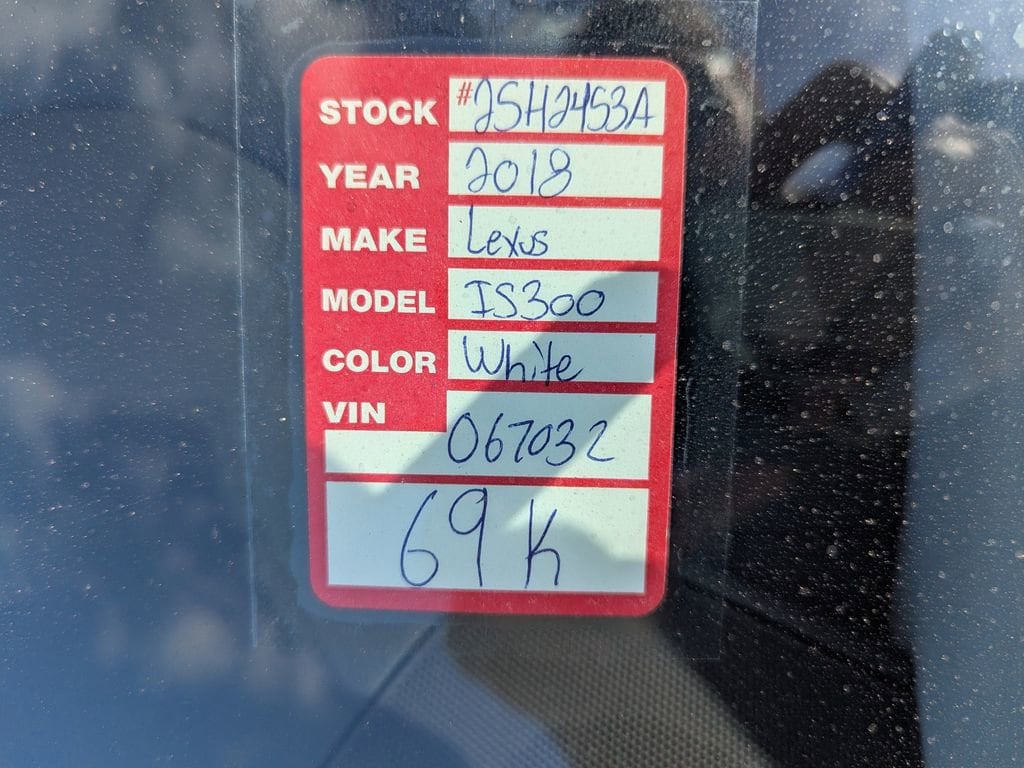 STOCK #2SH2453A
YEAR 2018
MAKE Lexus
MODEL IS300
COLOR White
VIN 067032
69K